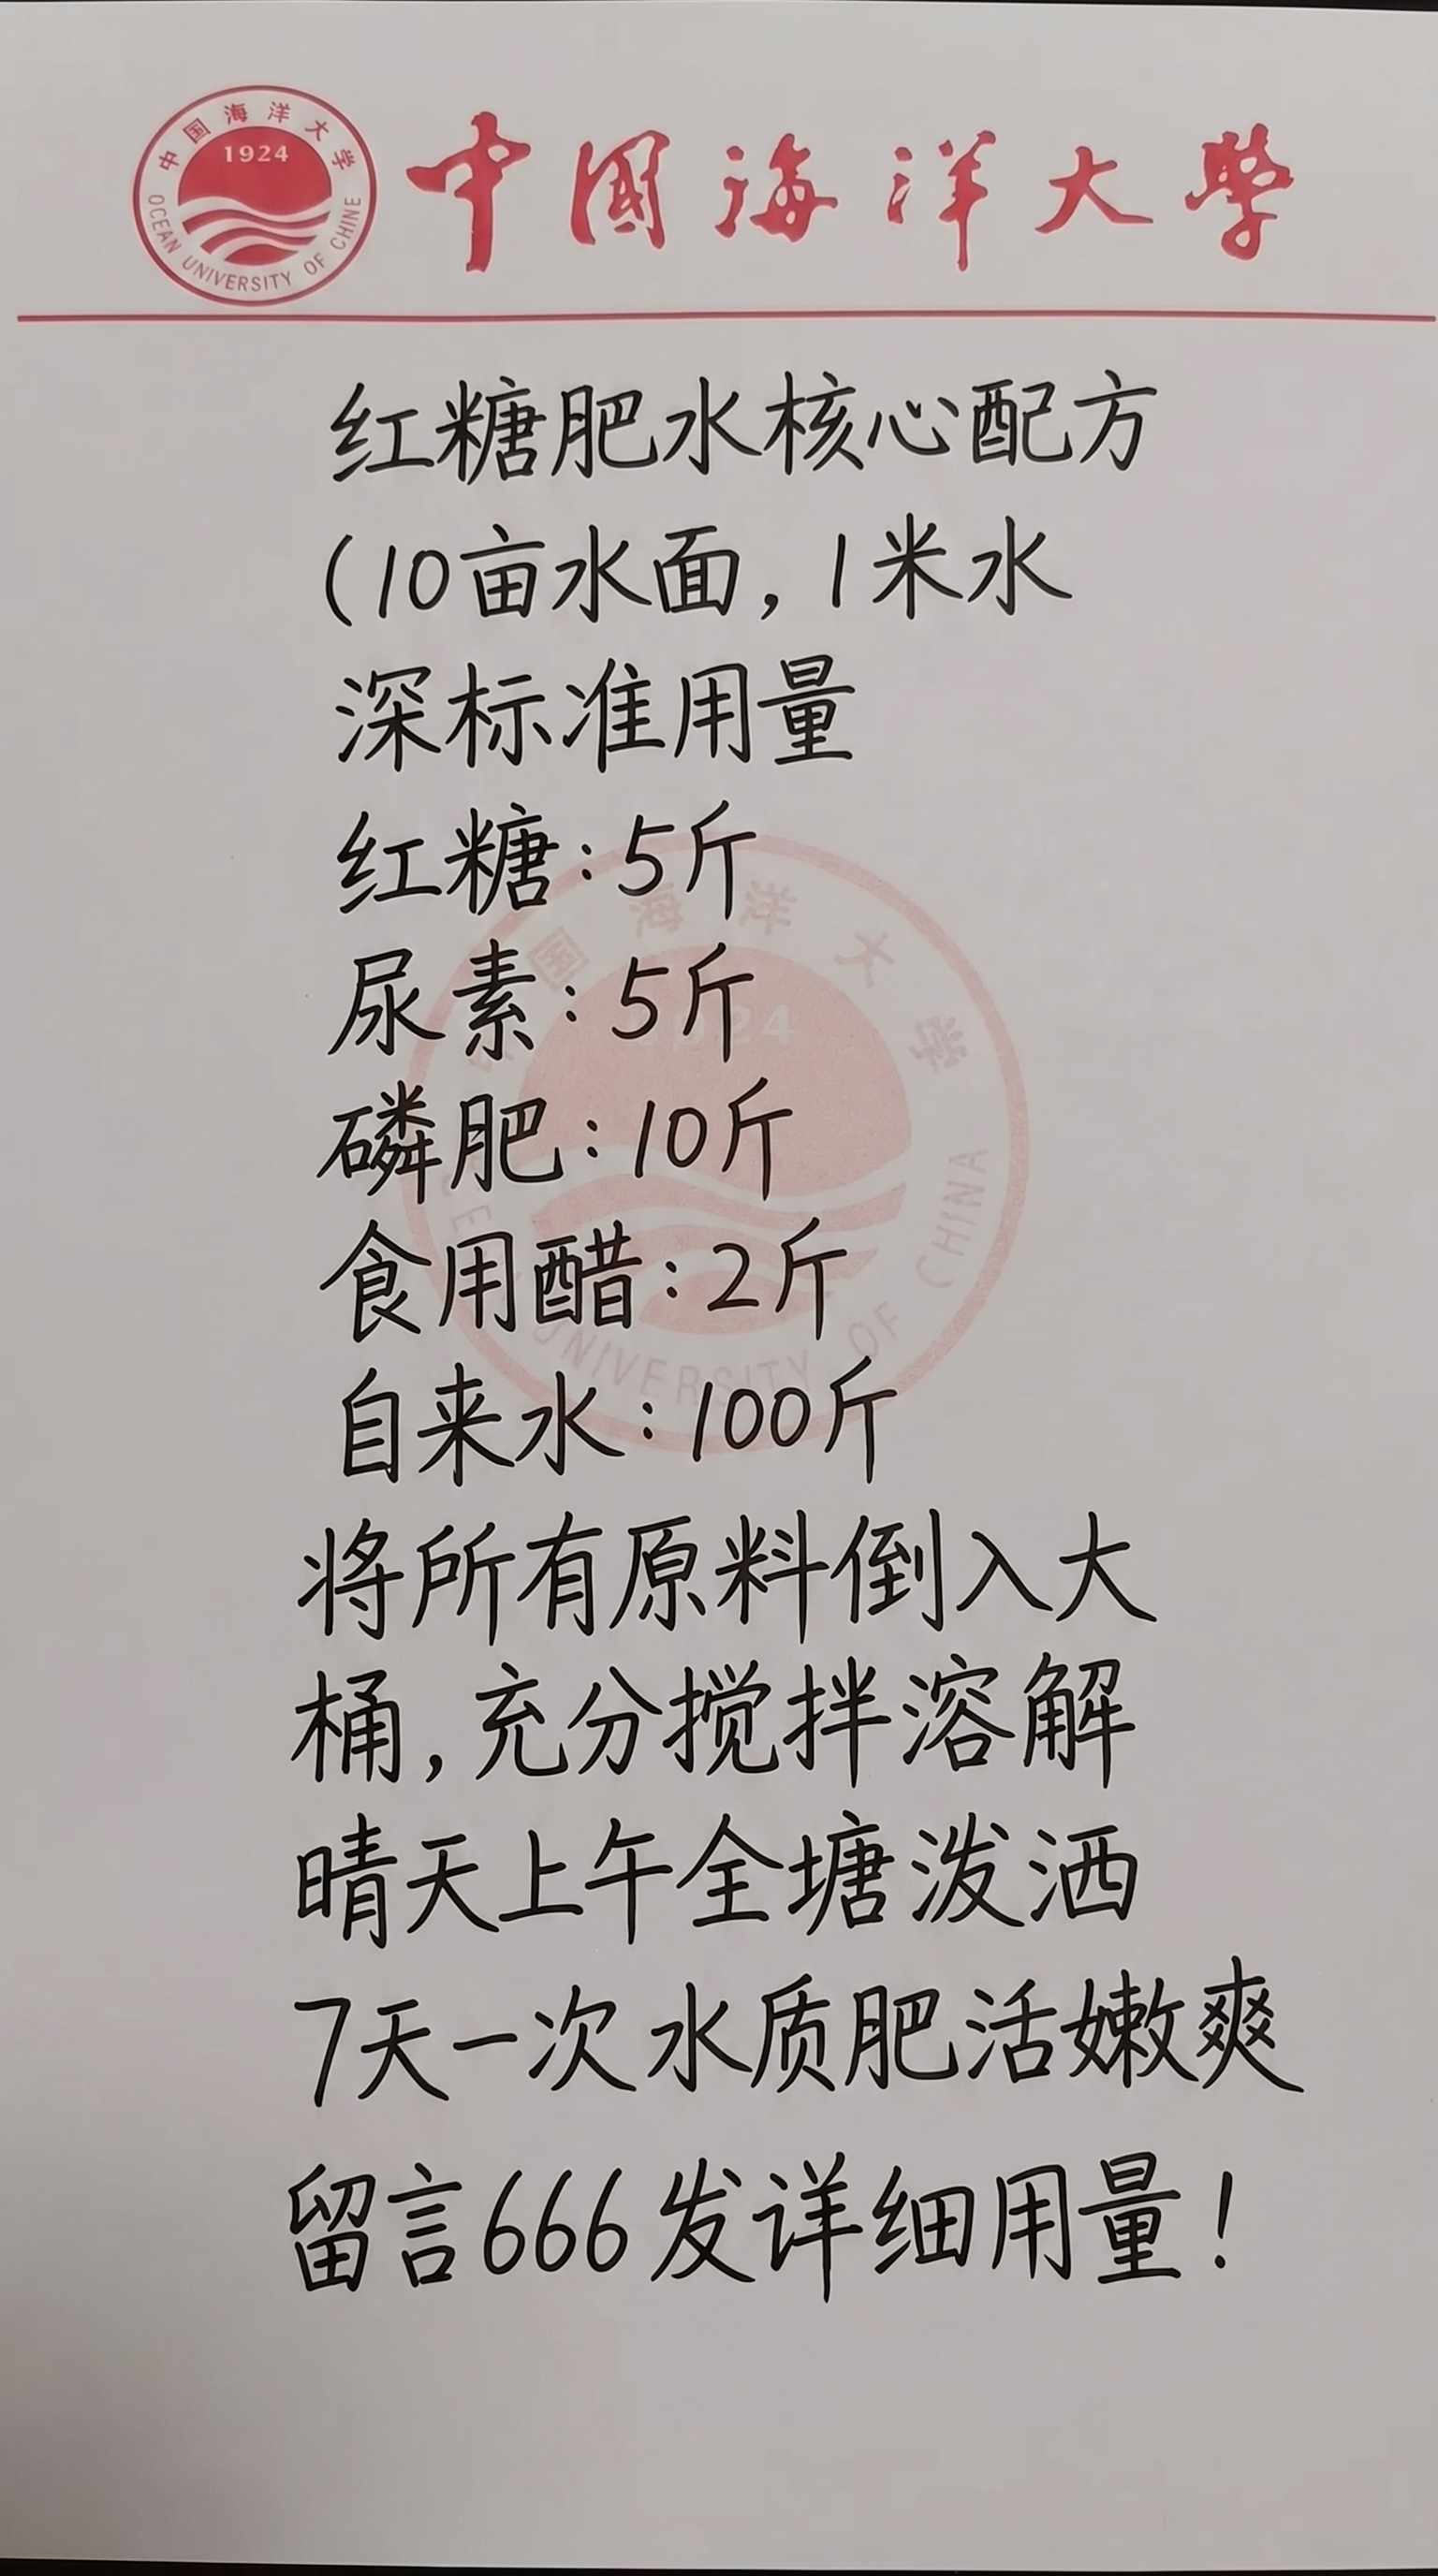 中国海洋大学
1924
OCEAN UNIVERSITY OF CHINE
中國海洋大學
红糖肥水核心配方
(10亩水面,1米水
深标准用量
红糖:5斤
尿素:5斤
磷肥:10斤
食用醋:2斤
自来水:100斤
将所有原料倒入大
桶,充分搅拌溶解
晴天上午全塘泼洒
7天一次水质肥活嫩爽
留言666发详细用量!
国海洋大学
1924
UNIVERSITY OF CHINA